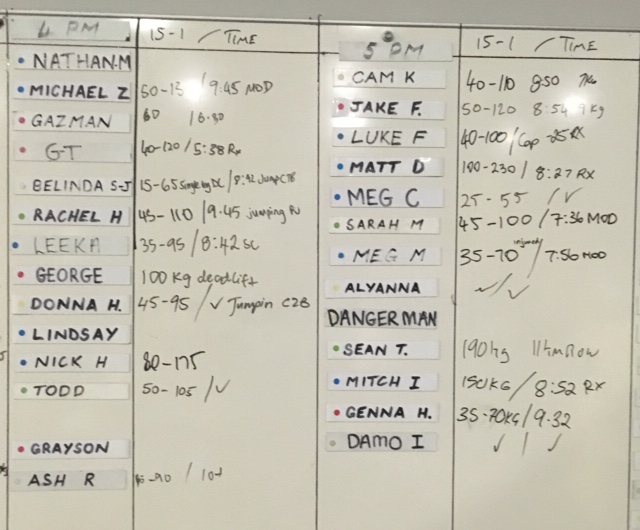 4 PM 15-1 / TIME
NATHAN.M
MICHAEL Z 60-15 / 9:45 MOD
GAZMAN 60 / 6:30
G-T 40-120 / 5:38 Rx
BELINDA S-J 15-65 / 8:42 Jump CTB
RACHEL H 45-110 / 9.45 jumping PU
LEEKA 35-95 / 8:42 SC
GEORGE 100 Kg deadlift
DONNA H. 45-95 / ✓ Jumpin C2B
LINDSAY
NICK H 80-175
TODD 50-105 / ✓
GRAYSON
ASH R -90 /
5 PM 15-1 / TIME
CAM K 40-110 8:50 7kg
JAKE F. 50-120 8:54 9kg
LUKE F 40-100 / Cap
MATT D 100-230 / 8:27 RX
MEG C 25-55 / ✓
SARAH M 45-100 / 7:36 MOD
MEG M 35-70 / 7:56 MOD
ALYANNA ✓/✓
DANGERMAN
SEAN T. 190kg 11km Row
MITCH I 150KG / 8:52 RX
GENNA H. 35-70KG / 9.32
DAMO I ✓ / ✓